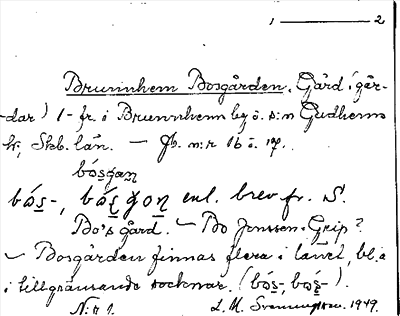 1 ——— 2
Brunnhem Bosgården. Gård (går-
dar) 1- fr. i Brunnhem by o. s:n Gudhems
hr, Skb. län. — Jb. n:r 16 o. 17.
bósgaꞃ
bós-, bósgoꞃ enl. brev fr. S.
Bo's gård. — Bo Jonsson Grip?
— Bosgården finnas flera i länet, bl. a
i tillgränsande socknar. (bós-, bós-).
N:r 1. L. M. Svennungsson. 1949.